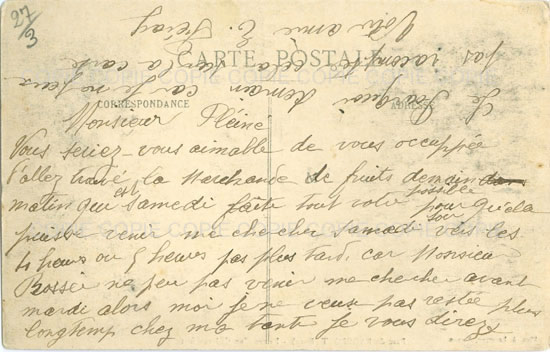 27/3
CARTE POSTALE
CORRESPONDANCE
ADRESSE
Monsieur Pleine
Vous seriez-vous aimable de vous occuppée
d'allez trouvé la Marchande de fruits demain
matin qui est samedi faite tout votre possible pour qu'ela
puisse venir me chercher samedi soir vers les
4 heures ou 5 heures pas plus tard, car Monsieu
Rossier ne peu pas venir me chercher avant
mardi alors moi je ne veux pas restée plus
longtemp chez ma tante je vous direz
le pourquoi demain car je ne peux
pas racompté cela sur la carte
Votre amie E.